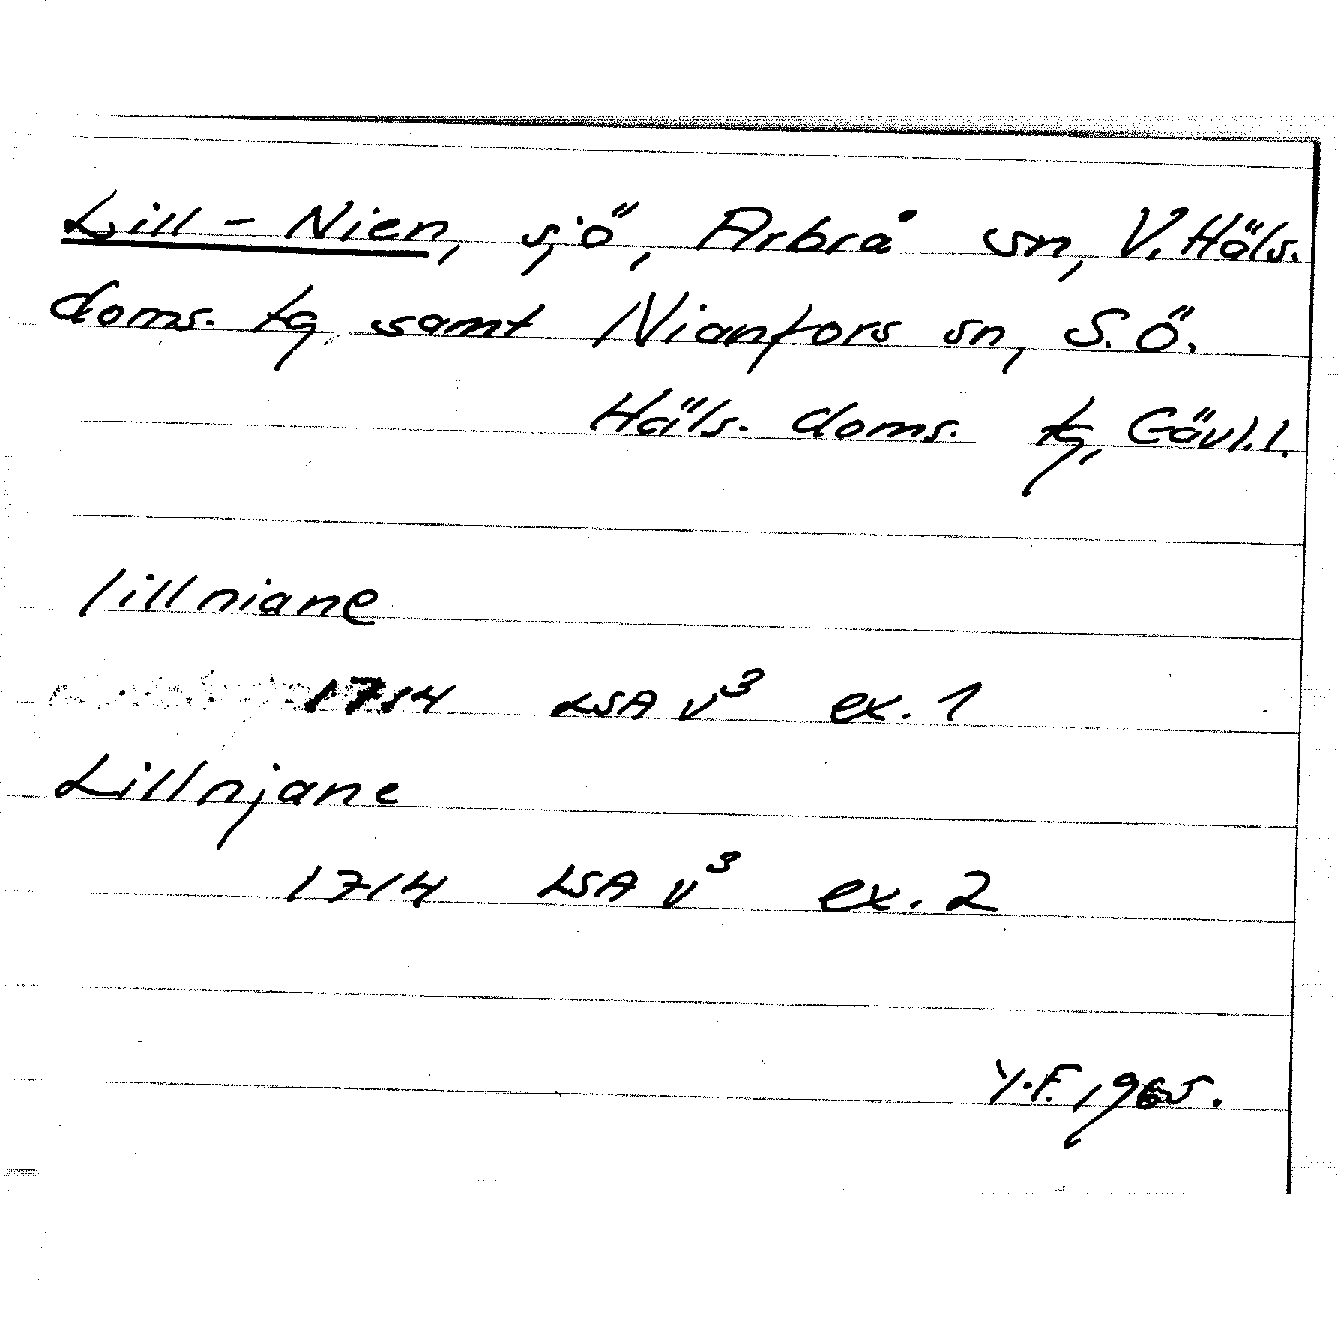 Lill-Nien, sjö, Arbrå sn, V. Häls.
doms. tg samt Nianfors sn, S.Ö.
Häls. doms. tg, Gävl.l.
lillniane
1714 LSA v³ ex. 1
Lillnjane
1714 LSA v³ ex. 2
Y.F. 1965.